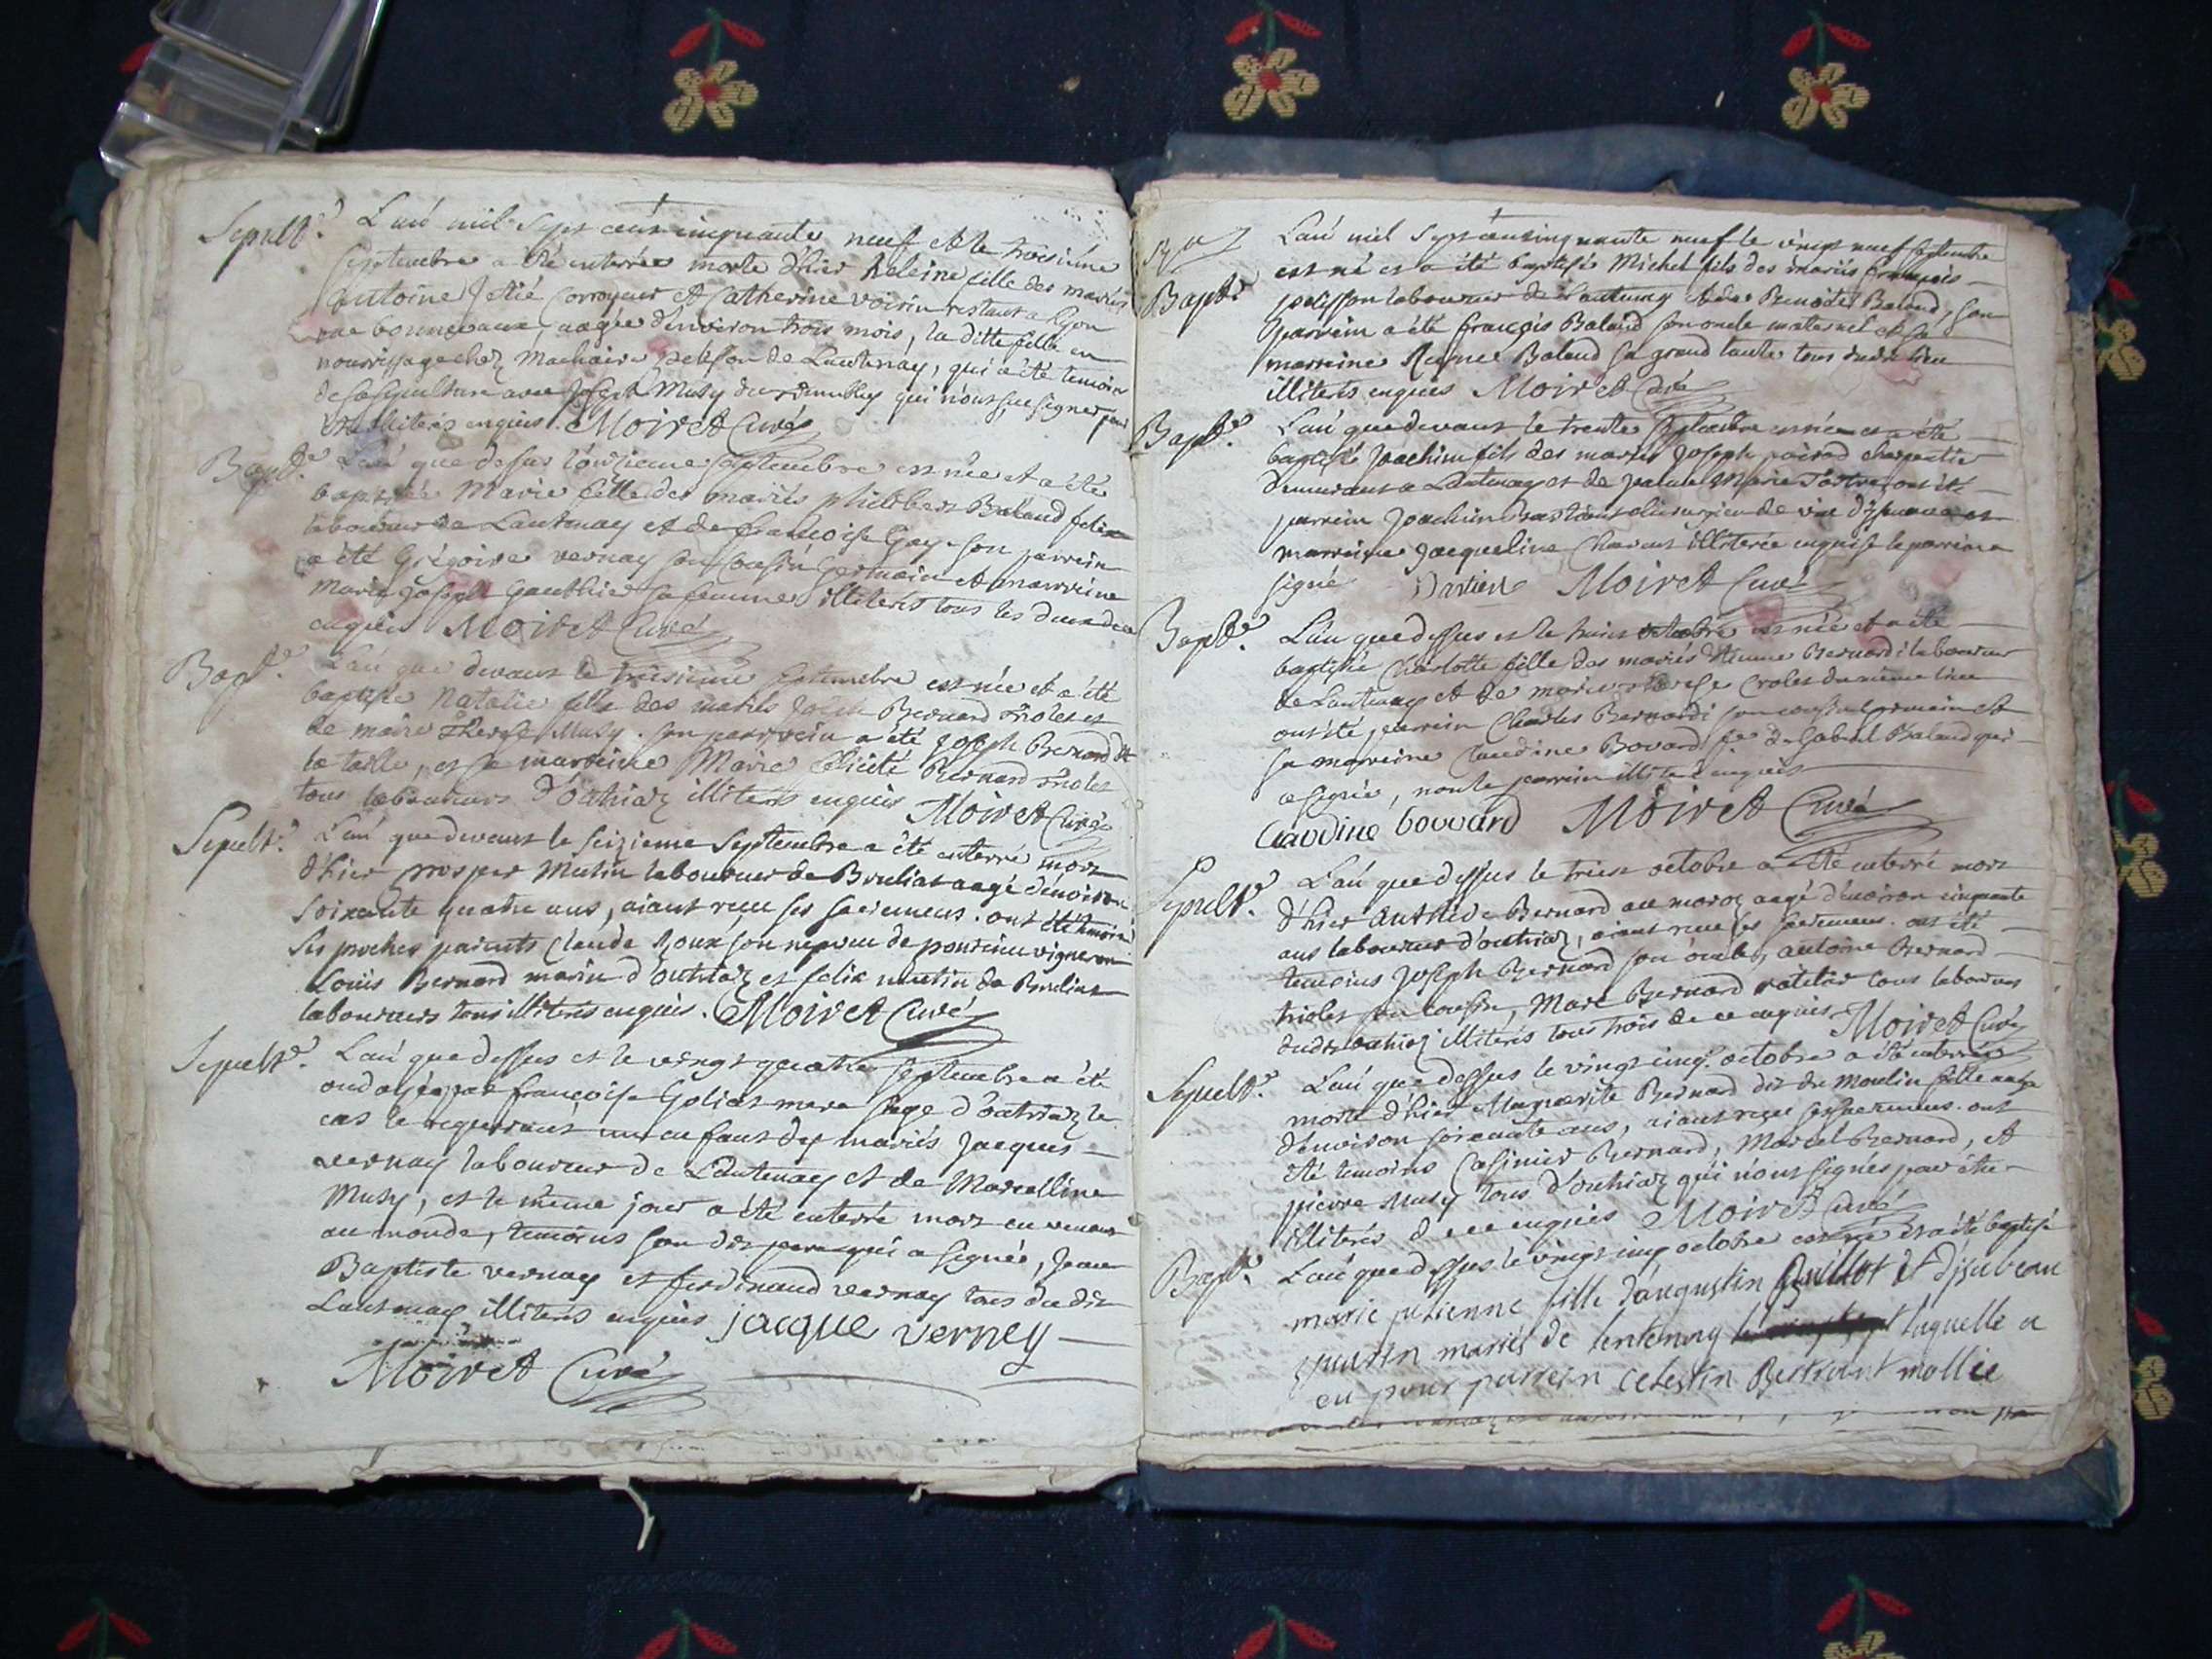 Sepult.e L'an mil sept cent cinquante neuf et le troisième
septembre a été enterrée morte d'hier heleine fille des mariés
antoine Jetié Corroyeur et Catherine voisin restant a lyon
rue bonneveaux, aagée d'environ trois mois, la ditte fille en
nourrissage chez Machaire pelisson de Lantenay, qui a été temoin
de sa sepulture avec Joseph Musy du qui n'ont sçue signer pour
être illiterés enquis. Moiret Curé
Bapt.e L'an que dessus l'onzieme septembre est née et a été
baptisée Marie fille des mariés philibert Baland felix
laboureur de Lantenay et de françoise Goy son parrein
a été Grégoire vernay son cousin germain et marreine
Marie Joseph Gauthier sa femme illiterés tous les deux de ce
enquis Moiret Curé
Bapt.e L'an que devant le treisieme septembre est née et a été
baptisée Natalie fille des mariés Joseph Bernard triolet et
de marie Therese Musy. son parrein a été Joseph Bernard dit
la taille, et sa marreine Marie felicité Bernard triolet
tous laboureurs d'outriaz illiterés enquis Moiret Curé
Sepult.e L'an que devant le seizieme Septembre a été enterré mort
d'hier prosper Mutin laboureur de Bruliat aagé d'environ
soixante quatre ans, aiant reçu ses sacremens. ont été temoins
ses proches parents Claude Roux son nepveu de poncieu vigneron
Louis Bernard marin d'outriaz et felix mutin de Brulliat
laboureurs tous illiterés enquis. Moiret Curé
Sepult.e L'an que dessus et le vingt quatre septembre a été
ondoyé par françoise Goliat mere sage d'outriaz le
cas le requerrant un enfant des mariés Jacques
vernay laboureur de Lantenay et de Marcelline
Musy, et le même jour a été enterré mort en venant
au monde, temoins son dit pere qui a signé, Jean
Baptiste vernay et ferdinand vernay tous du dit
Lantenay illiterés enquis jacque verney
Moiret Curé
L'an mil sept cent cinquante neuf le vingt neuf septembre
Bapt.e est né et a été baptisé Michel fils des mariés françois
pelisson laboureur de Lantenay et de Benoite Baland, son
parrein a été françois Baland son oncle maternel et sa
marreine Reyne Baland sa grand tante tous dudit lieu
illiterés enquis Moiret Curé
Bapt.e L'an que devant le trente septembre est né et a été
baptisé Joachim fils des mariés Joseph charpentier
demeurant a Lantenay et de jeanne Marie Tostre, ont été
parrein Joachim chirurgien de et
marreine Jacqueline Charvet illiterée enquise le parrein a
signé Moiret Curé
Bapt.e L'an que dessus et le treize octobre est née et a été
baptisée Charlotte fille des mariés Etienne Bernardi laboureur
de Lantenay et de marie therese Crolet du même lieu
ont été parrein Charles Bernardi son cousin germain et
sa marreine Claudine Bovard f.e de Gabriel Baland qui
a signée, non le parrein illiteré enquis
Claudine bovvard Moiret Curé
Sepult.e L'an que dessus le treize octobre a été enterré mort
d'hier Anthide Bernard au maroz aagé d'environ cinquante
ans laboureur d'outriaz, aiant reçu ses sacremens. ont été
temoins Joseph Bernard son oncle, antoine Bernard
triolet son cousin, Marc Bernard ratelier tous laboureurs
dudit outriaz illiterés tous trois de ce enquis Moiret Curé
Sepult.e L'an que dessus le vingt cinq octobre a été enterrée
morte d'hier Marguerite Bernard dit du Moulin fille aagée
d'environ soixante ans, aiant reçu ses sacremens. ont
été temoins Casimier Bernard, Marcel Bernard, et
pierre musy tous d'outriaz qui n'ont signés pour être
illiterés de ce enquis Moiret Curé
Bapt.e L'an que dessus le vingt cinq octobre est née et a été baptisé
marie julienne fille d'augustin Guillot et d'jsabeau
mariés de lentenay laquelle a
eu pour parrein celestin Bertrant mollie